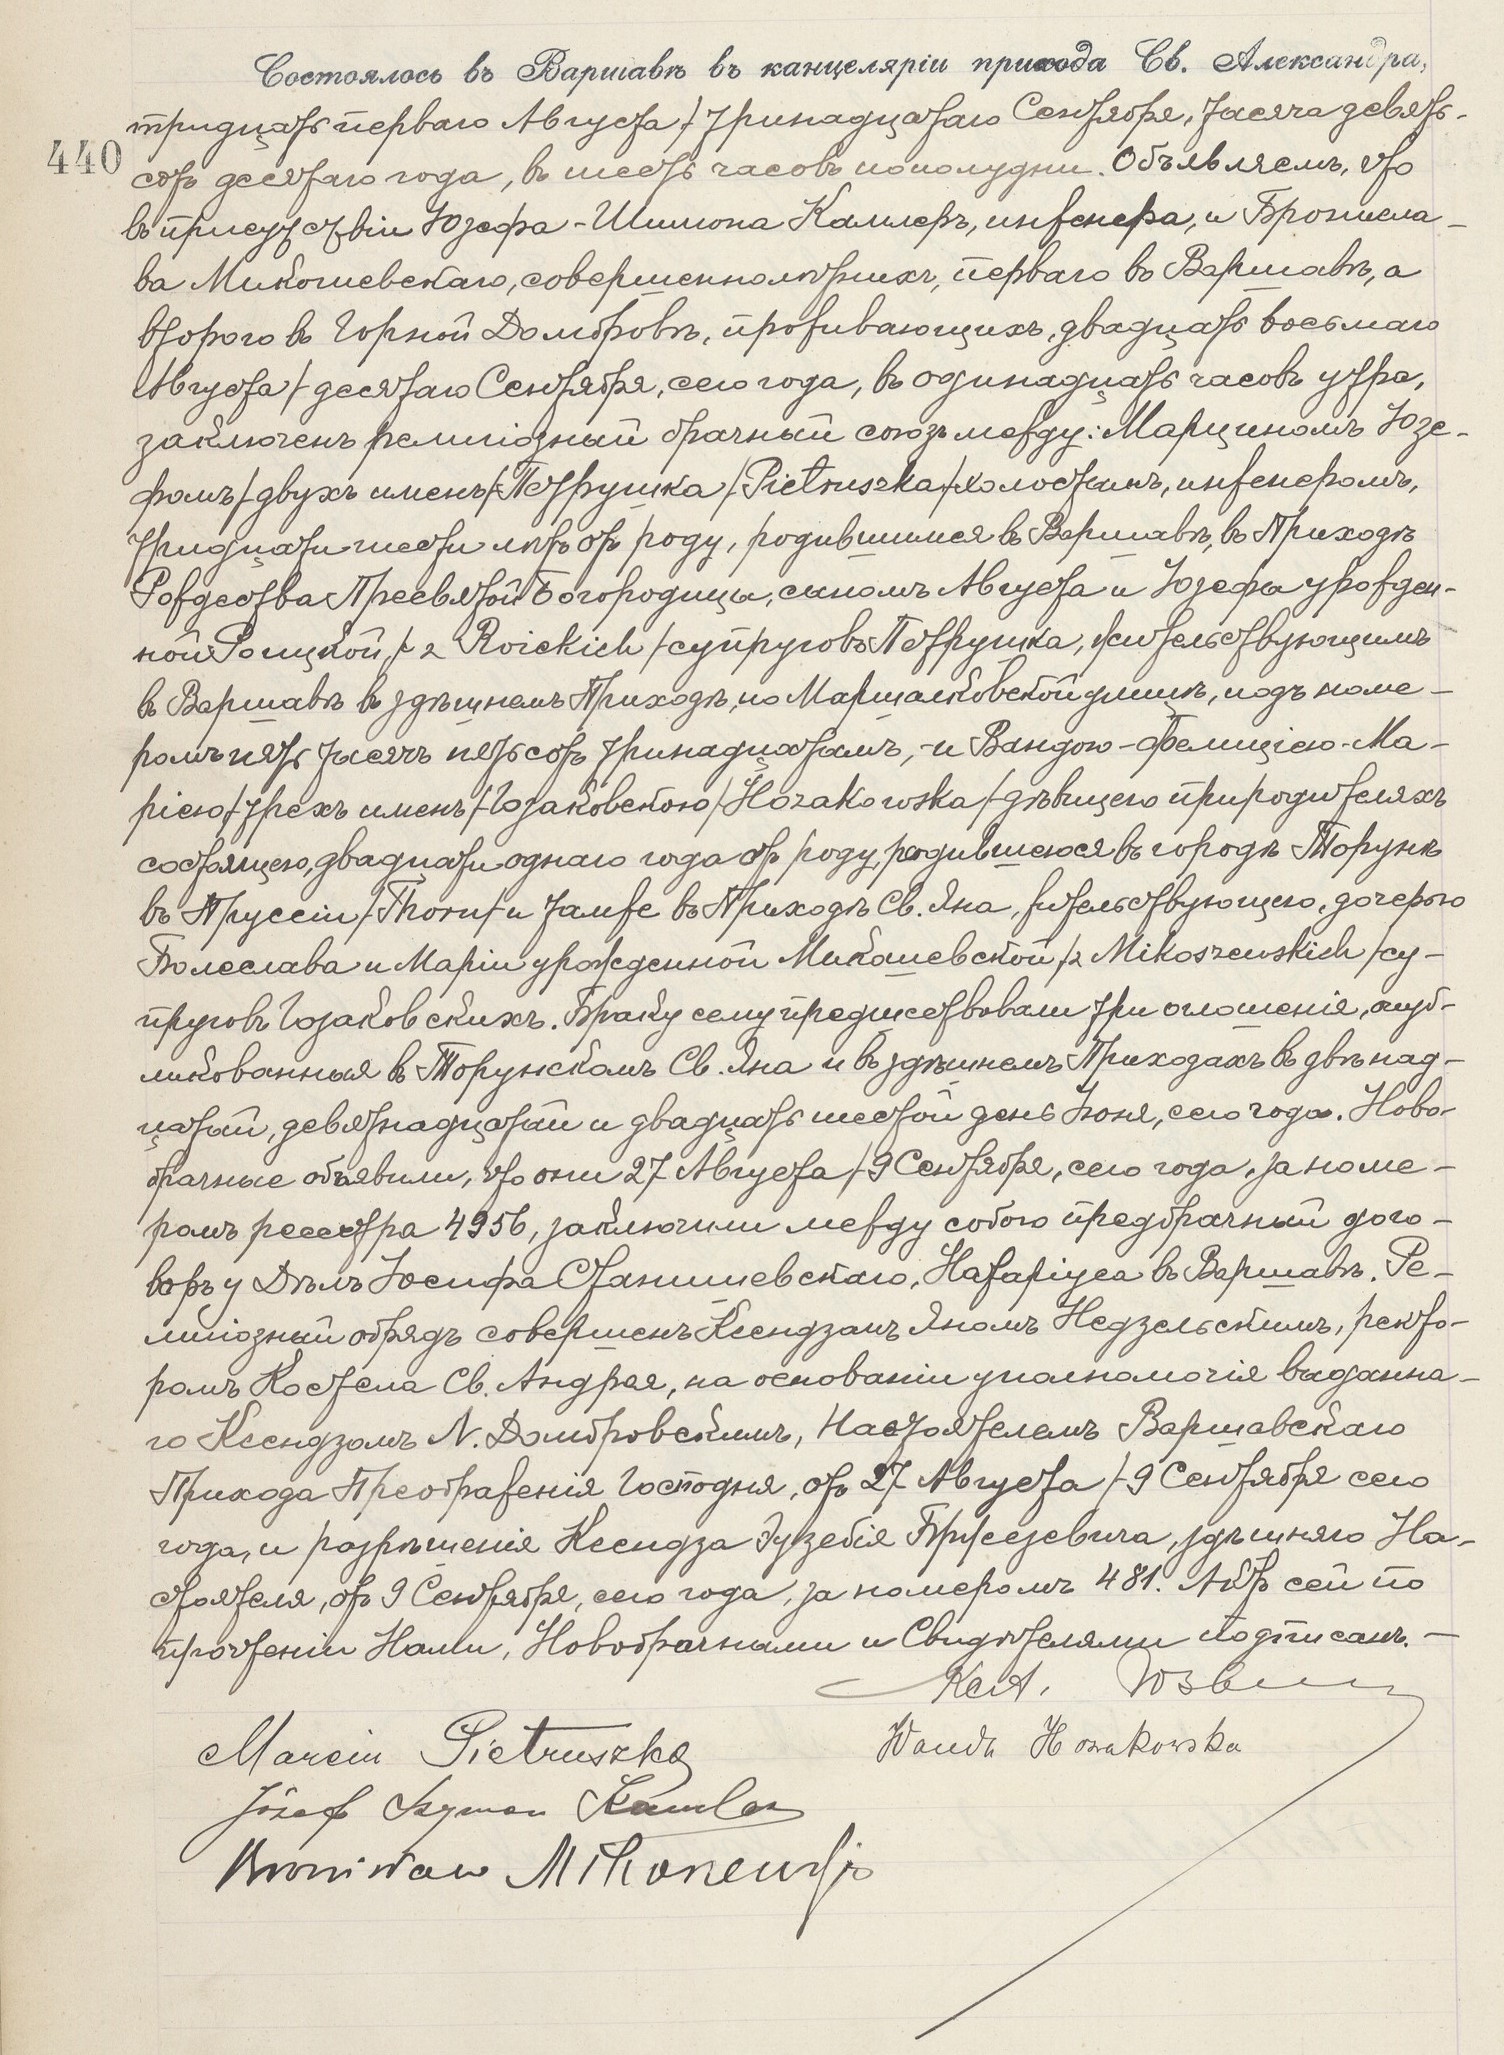 Состоялось въ Варшавѣ въ канцеляріи прихода Св. Александра,
тридцать перваго Августа /-тринадцатаго Сентября, тысяча девять-
440
сотъ десятаго года, въ шесть часовъ пополудни. Объявляемъ, что
въ присутствіи Юзефа-Шимона Камлеръ, инженера, и Брониела-
ва Микошевскаго, совершеннолѣтнихъ, перваго въ Варшавѣ, а
втораго въ Горной Домбровѣ, проживающихъ, двадцать восьмаго
Августа /-десятаго Сентября, сего года, въ одинадцать часовъ утра,
заключенъ религіозный брачный союзъ между: Марциномъ Юзе-
фомъ /-двухъ именъ/-Петрушка /-Pietruszka/-холостымъ, инженеромъ,
тридцати шести лѣтъ отъ роду, родившимся въ Варшавѣ, въ Приходѣ
Рождества Пресвятой Богородицы, сыномъ Августа и Юзефы урожден-
ной Роицкой, /-z Roickich /-супруговъ Петрушка, жительствующимъ
въ Варшавѣ въ здѣшнемъ Приходѣ, по Маршалковской улицѣ, подъ номе-
ромъ пять тысячъ пятьсотъ тринадцатымъ, -и Вандою-Фелиціею-Ма-
ріею /-трехъ именъ/-Гозаковскою /-Hozakowska /-дѣвицею при родителяхъ
состоящею, двадцати однаго года отъ роду, родившеюся въ городѣ Торунѣ
въ Пруссіи /-Thorn/-и тамже въ Приходѣ Св. Яна, жительствующею, дочерью
Болеслава и Маріи урожденной Микошевской /-z Mikoszewskich /-су-
пруговъ Гозаковскихъ. Браку сему предшествовали три оглошенія, опуб-
ликованныя въ Торунскомъ Св. Яна и въ здѣшнемъ Приходахъ въ двѣнад-
цатый, девятнадцатый и двадцать шестой день Іюня, сего года. Ново-
брачные объявили, что они 27 Августа /-9 Сентября, сего года, за номе-
ромъ реестра 4956, заключили между собою предбрачный дого-
воръ у Дѣлъ Іосифа Станишевскаго, Натаріуса въ Варшавѣ. Ре-
лигіозный обрядъ совершенъ Ксендзомъ Яномъ Недзельскимъ, ректо-
ромъ Костела Св. Андрея, на основаніи уполномочія выданна-
го Ксендзомъ N. Домбровскимъ, Настоятелемъ Варшавскаго
Прихода Преображенія Господня, отъ 27 Августа /-9 Сентября сего
года, и разрѣшенія Ксендза Эузебія Бржезевича, здѣшняго На-
стоятеля, отъ 9 Сентября, сего года, за номеромъ 481. Актъ сей по
прочтеніи Нами, Новобрачными и Свидѣтелями подписанъ. —
Marcin Pietruszka
Wanda Hozakowska
Józef Szymon Kamler
Bronisław Mikoszewski